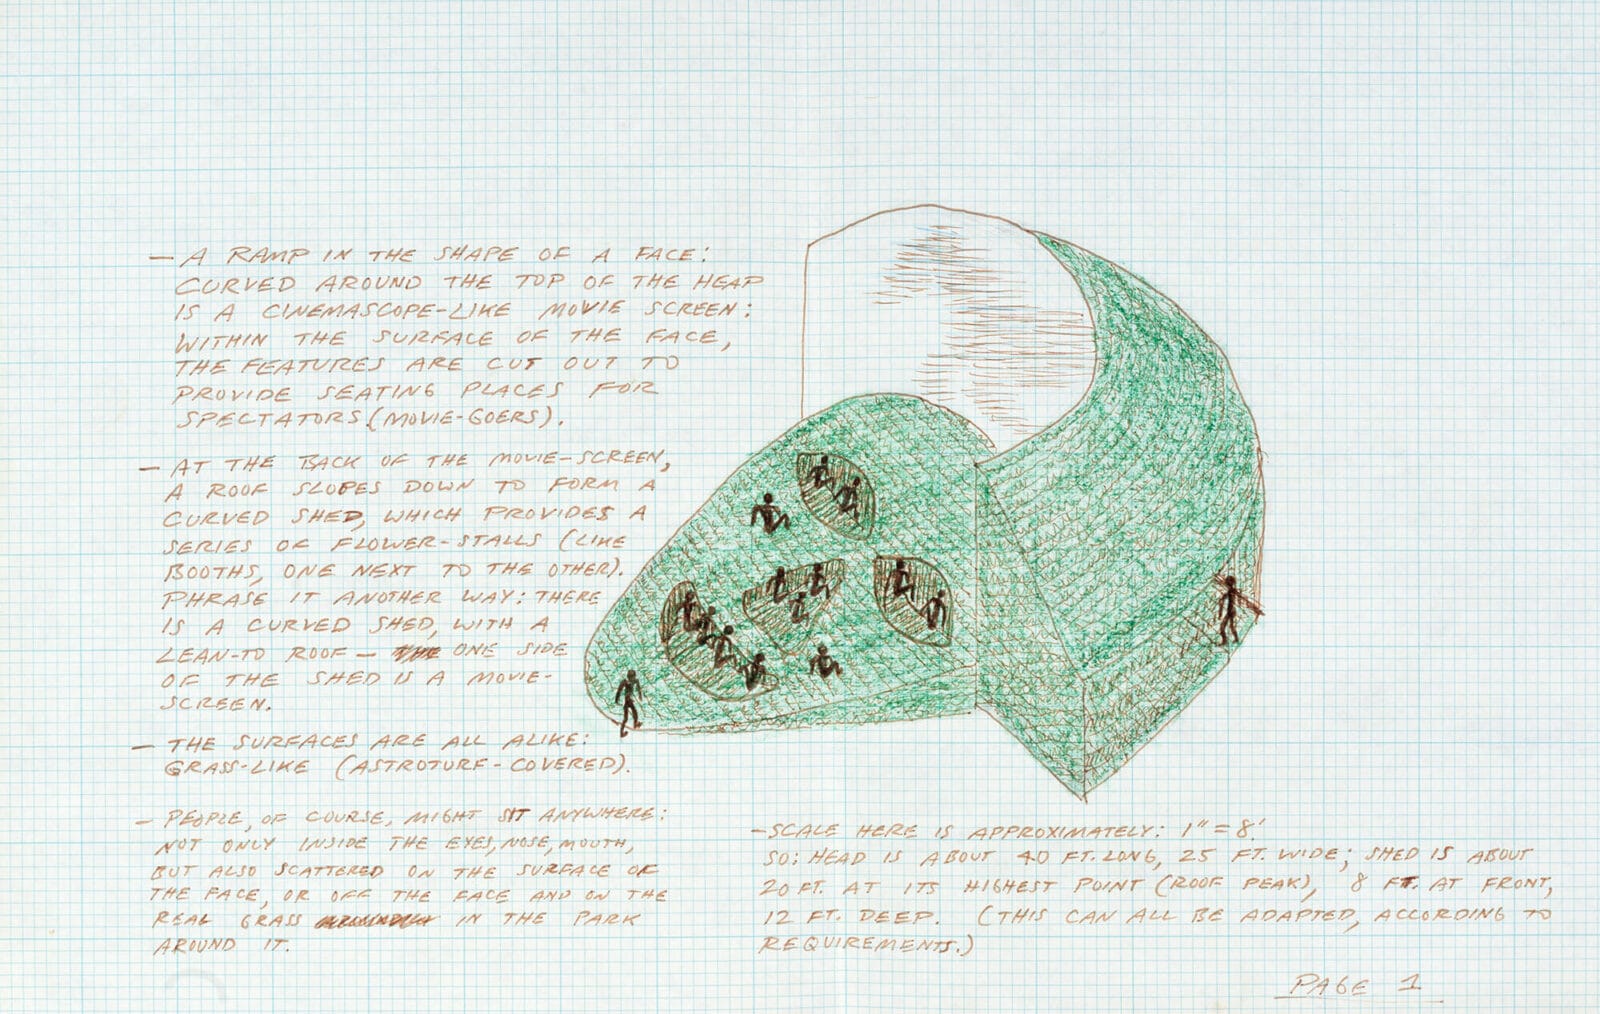 — A RAMP IN THE SHAPE OF A FACE:
CURVED AROUND THE TOP OF THE HEAD
IS A CINEMASCOPE-LIKE MOVIE SCREEN:
WITHIN THE SURFACE OF THE FACE,
THE FEATURES ARE CUT OUT TO
PROVIDE SEATING PLACES FOR
SPECTATORS (MOVIE-GOERS).
— AT THE BACK OF THE MOVIE-SCREEN,
A ROOF SLOPES DOWN TO FORM A
CURVED SHED, WHICH PROVIDES A
SERIES OF FLOWER-STALLS (LIKE
BOOTHS, ONE NEXT TO THE OTHER).
PHRASE IT ANOTHER WAY: THERE
IS A CURVED SHED, WITH A
LEAN-TO ROOF — ONE SIDE
OF THE SHED IS A MOVIE-
SCREEN.
— THE SURFACES ARE ALL ALIKE:
GRASS-LIKE (ASTROTURF-COVERED).
— PEOPLE, OF COURSE, MIGHT SIT ANYWHERE:
NOT ONLY INSIDE THE EYES, NOSE, MOUTH,
BUT ALSO SCATTERED ON THE SURFACE OF
THE FACE, OR OFF THE FACE AND ON THE
REAL GRASS IN THE PARK
AROUND IT.
— SCALE HERE IS APPROXIMATELY: 1" = 8'.
SO: HEAD IS ABOUT 40 FT. LONG, 25 FT. WIDE; SHED IS ABOUT
20 FT. AT ITS HIGHEST POINT (ROOF PEAK), 8 FT. AT FRONT,
12 FT. DEEP. (THIS CAN ALL BE ADAPTED, ACCORDING TO
REQUIREMENTS.)
PAGE 1